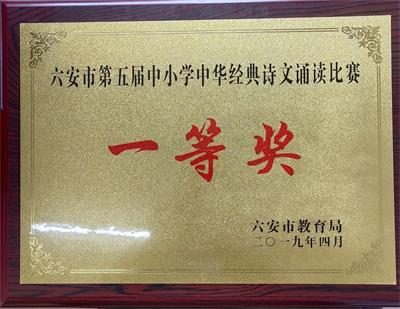 六安市第五届中小学中华经典诗文诵读比赛
一等奖
六安市教育局
二〇一九年四月